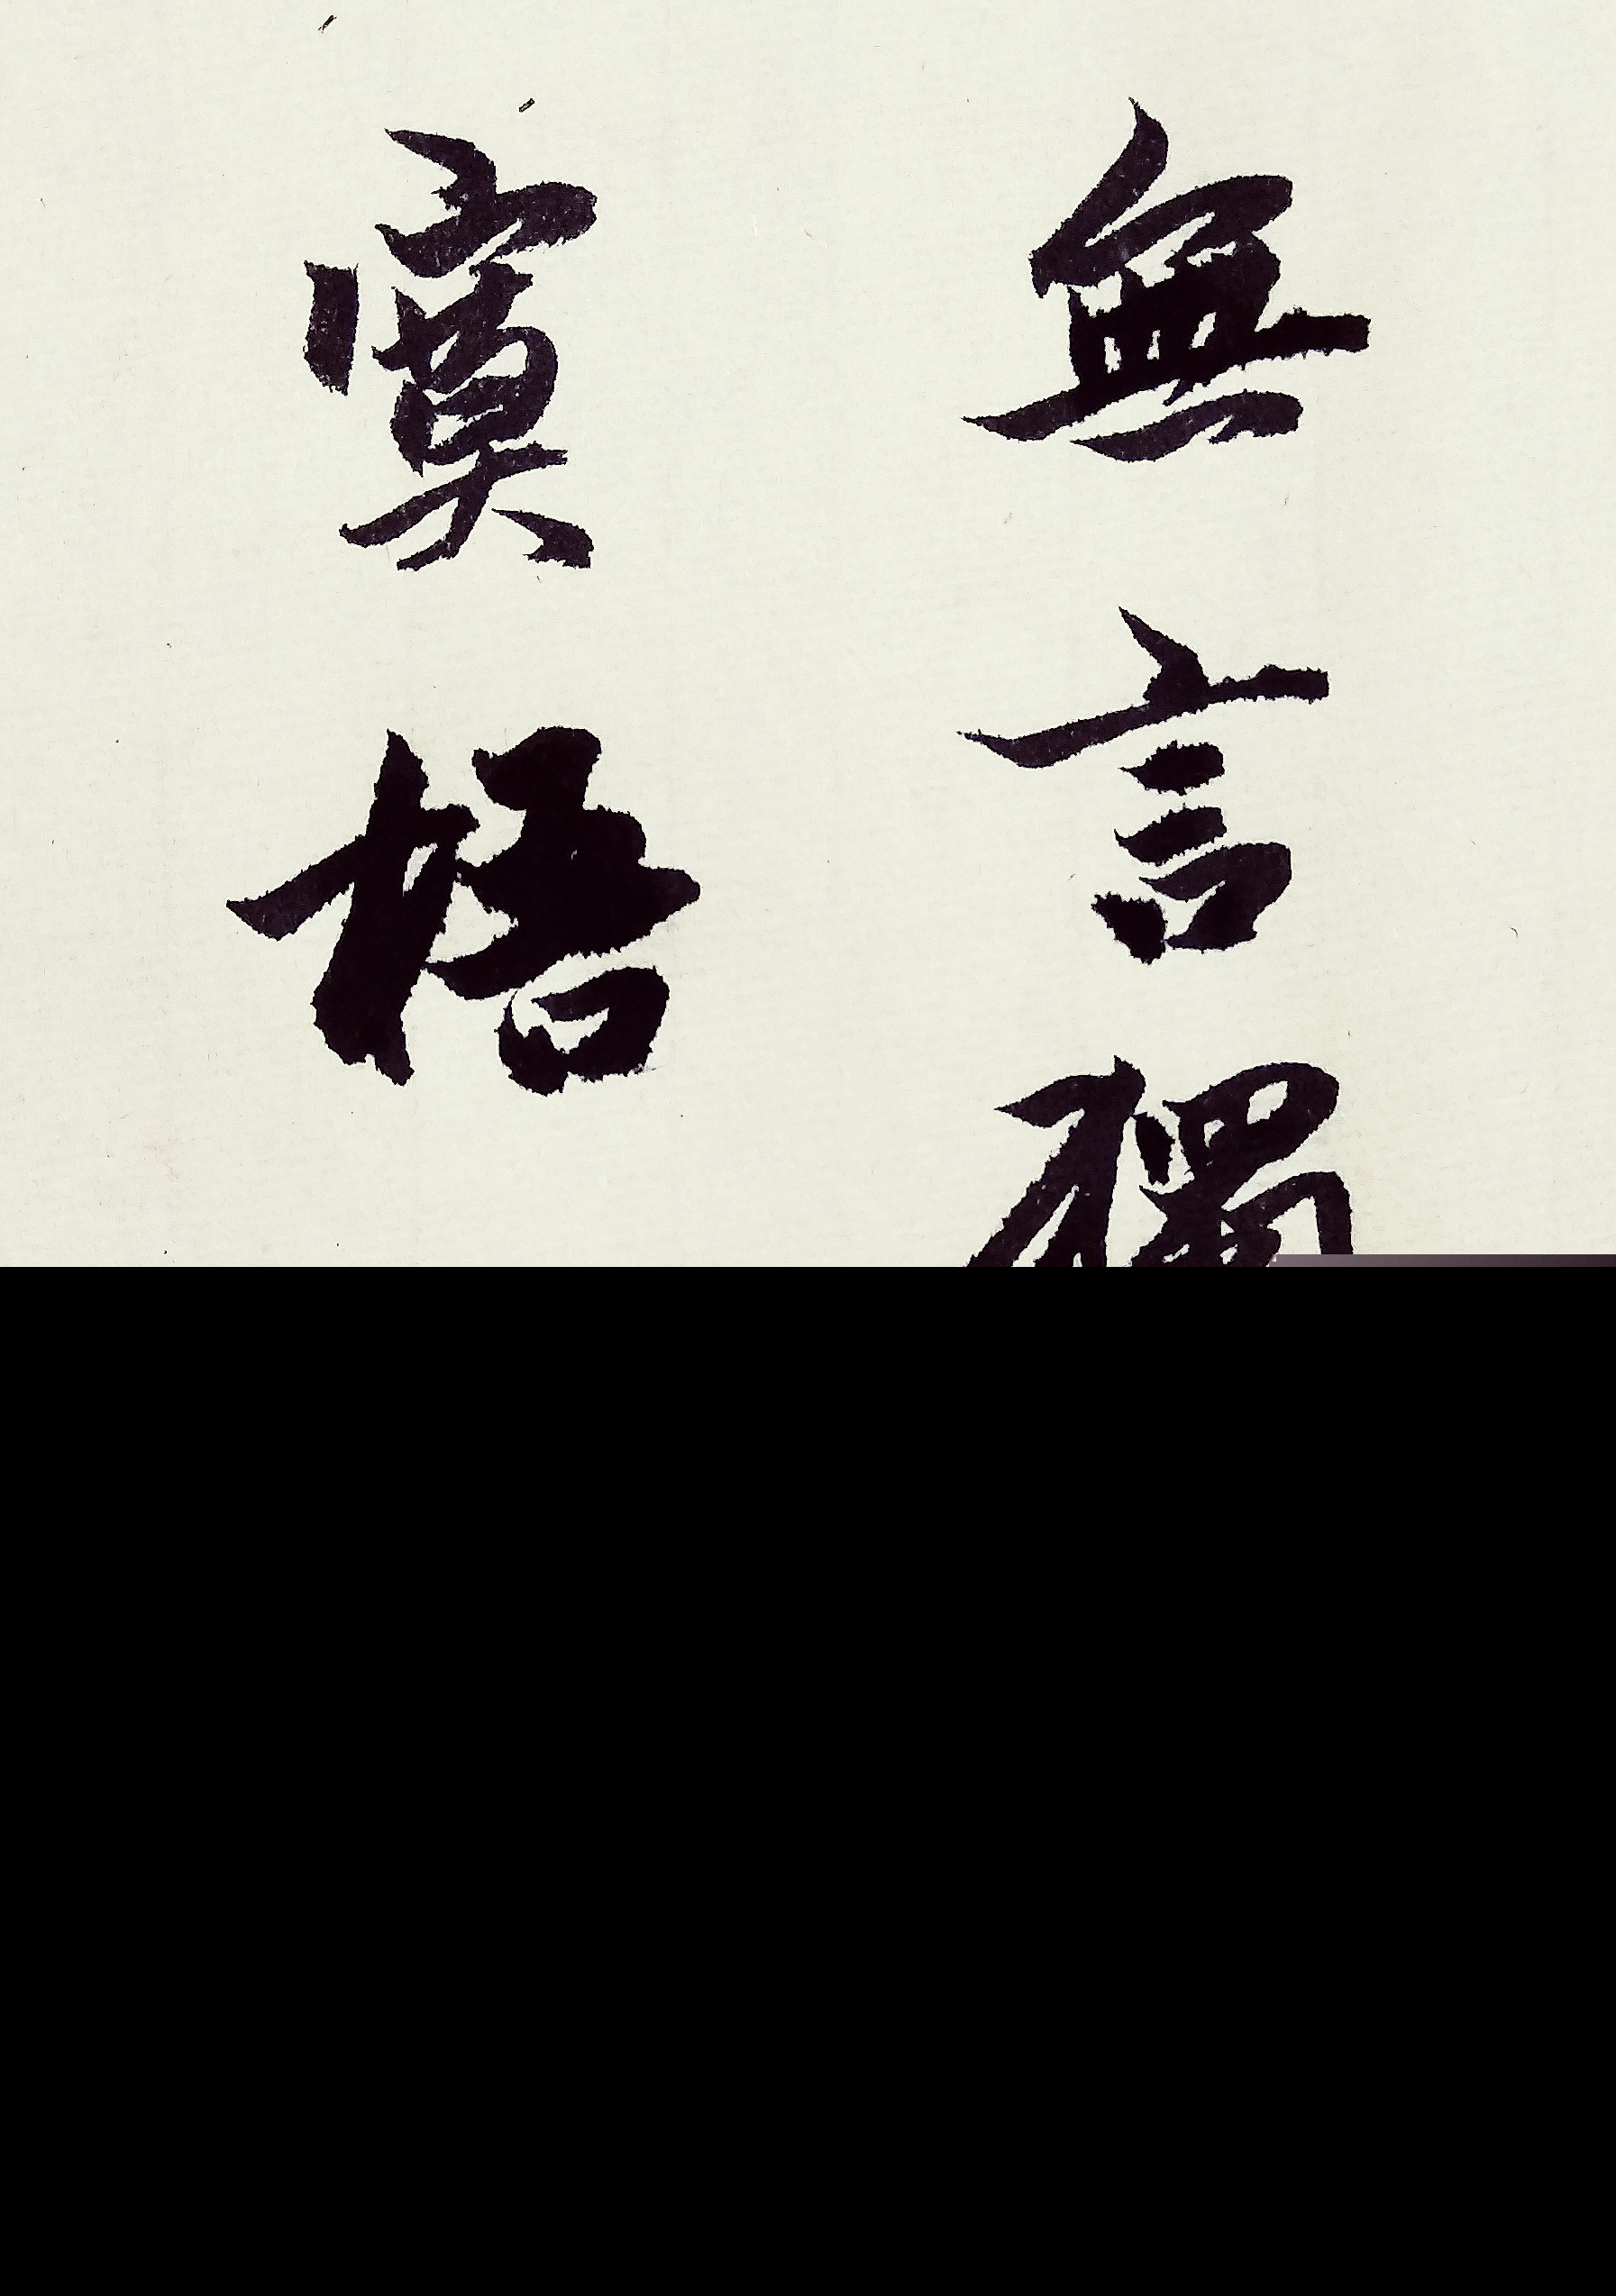 無言獨
寞梧